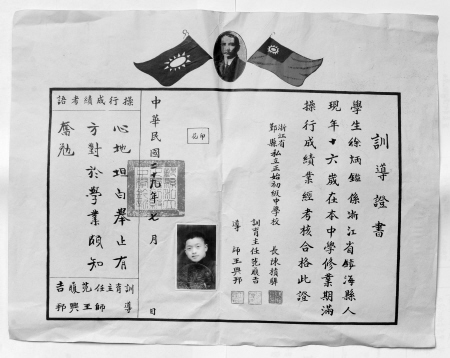 訓導證書
學生徐炳鑑係浙江省鎮海縣人
現年十六歲在本中學修業期滿
操行成績業經考核合格此證
浙江省
鄞縣私立正始初級中學校
長陳積驊
訓育主任范順吉
導師王興邦
印花
中華民國二十九年七月 日
操行成績考語
心地坦白舉止有
方對於學業頗知
奮勉
訓育主任范順吉
導師王興邦